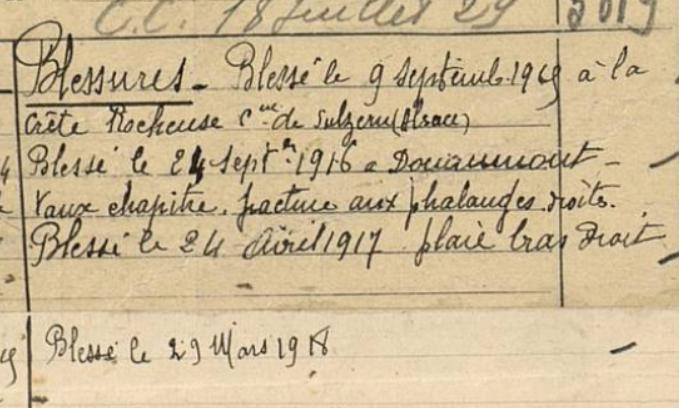 C.C. 18 Juillet 29
Blessures - Blessé le 9 Septemb. 1915 à la
Crête Rocheuse Cne de Sulzern (Alsace)
Blessé le 24 Septbre 1916 a Douaumont -
Vaux chapitre. fracture aux phalanges droits.
Blessé le 24 Avril 1917 plaie bras Droit
Blessé le 29 Mars 1918 -